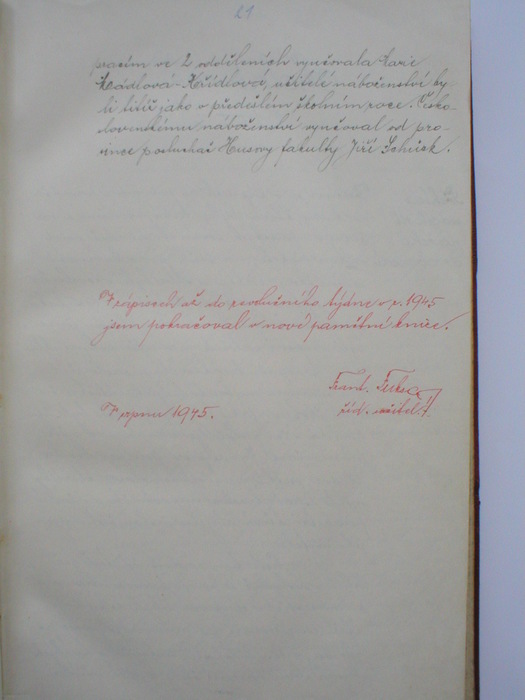 21
pracím ve 2 odděleních vyučovala Marie
Mádlová-Křídlová, učitelé náboženství by-
li titíž jako v předešlém školním roce. Česko-
slovenskému náboženství vyučoval od pro-
since posluchač Husovy fakulty Jiří
V zápisech až do revolučního týdne v r. 1945
jsem pokračoval v nové pamětní knize.
Frant.
říd. učitel
V srpnu 1945.